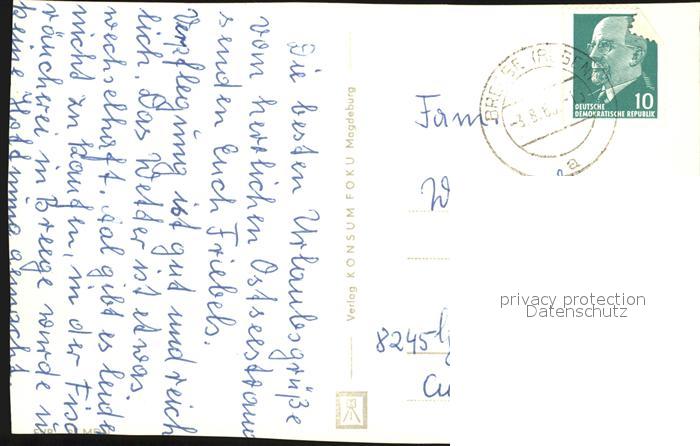 Die besten Urlaubsgrüße
vom herrlichen Ostseestrand
senden Euch Friebels.
Verpflegung ist gut und reich
lich. Das Wetter ist etwas
wechselhaft. Aal gibt es leider
nicht zu kaufen, in der Fisch
räucherei in Breege wurde u
keine Hoffnung gemacht.
Verlag KONSUM FOKU Magdeburg
BREEGE (RÜGEN)
-3.8.6
a
10
DEUTSCHE
DEMOKRATISCHE REPUBLIK
Fam.
W
8245
privacy protection
Datenschutz